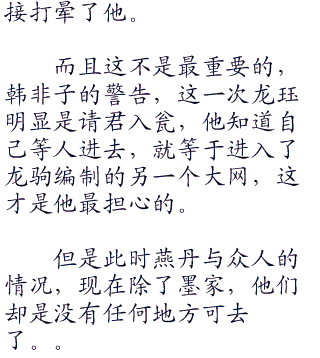 接打晕了他。
而且这不是最重要的，
韩非子的警告，这一次龙珏
明显是请君入瓮，他知道自
己等人进去，就等于进入了
龙驹编制的另一个大网，这
才是他最担心的。
但是此时燕丹与众人的
情况，现在除了墨家，他们
却是没有任何地方可去
了。。